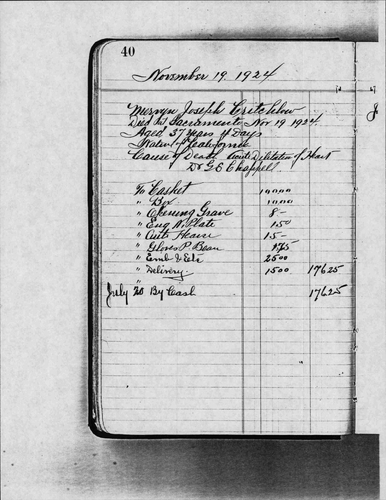 40
November 19, 1924
Mervyn Joseph Critchlow
Died At Sacramento Nov 19 1924.
Aged 37 Years 4 Days
Native of California
Cause of Death Acute Dilitation of Heart
Dr G. E. Chappell
To Casket 100.00
" Box 10.00
" Opening Grave 8-
" Eng N. Plate 1.50
" Auto Hearse 15-
" Gloves P. Bear 1.75
" Emb & Etc 25.00
" Delivery 15.00 176.25
July 20 By Cash 176.25